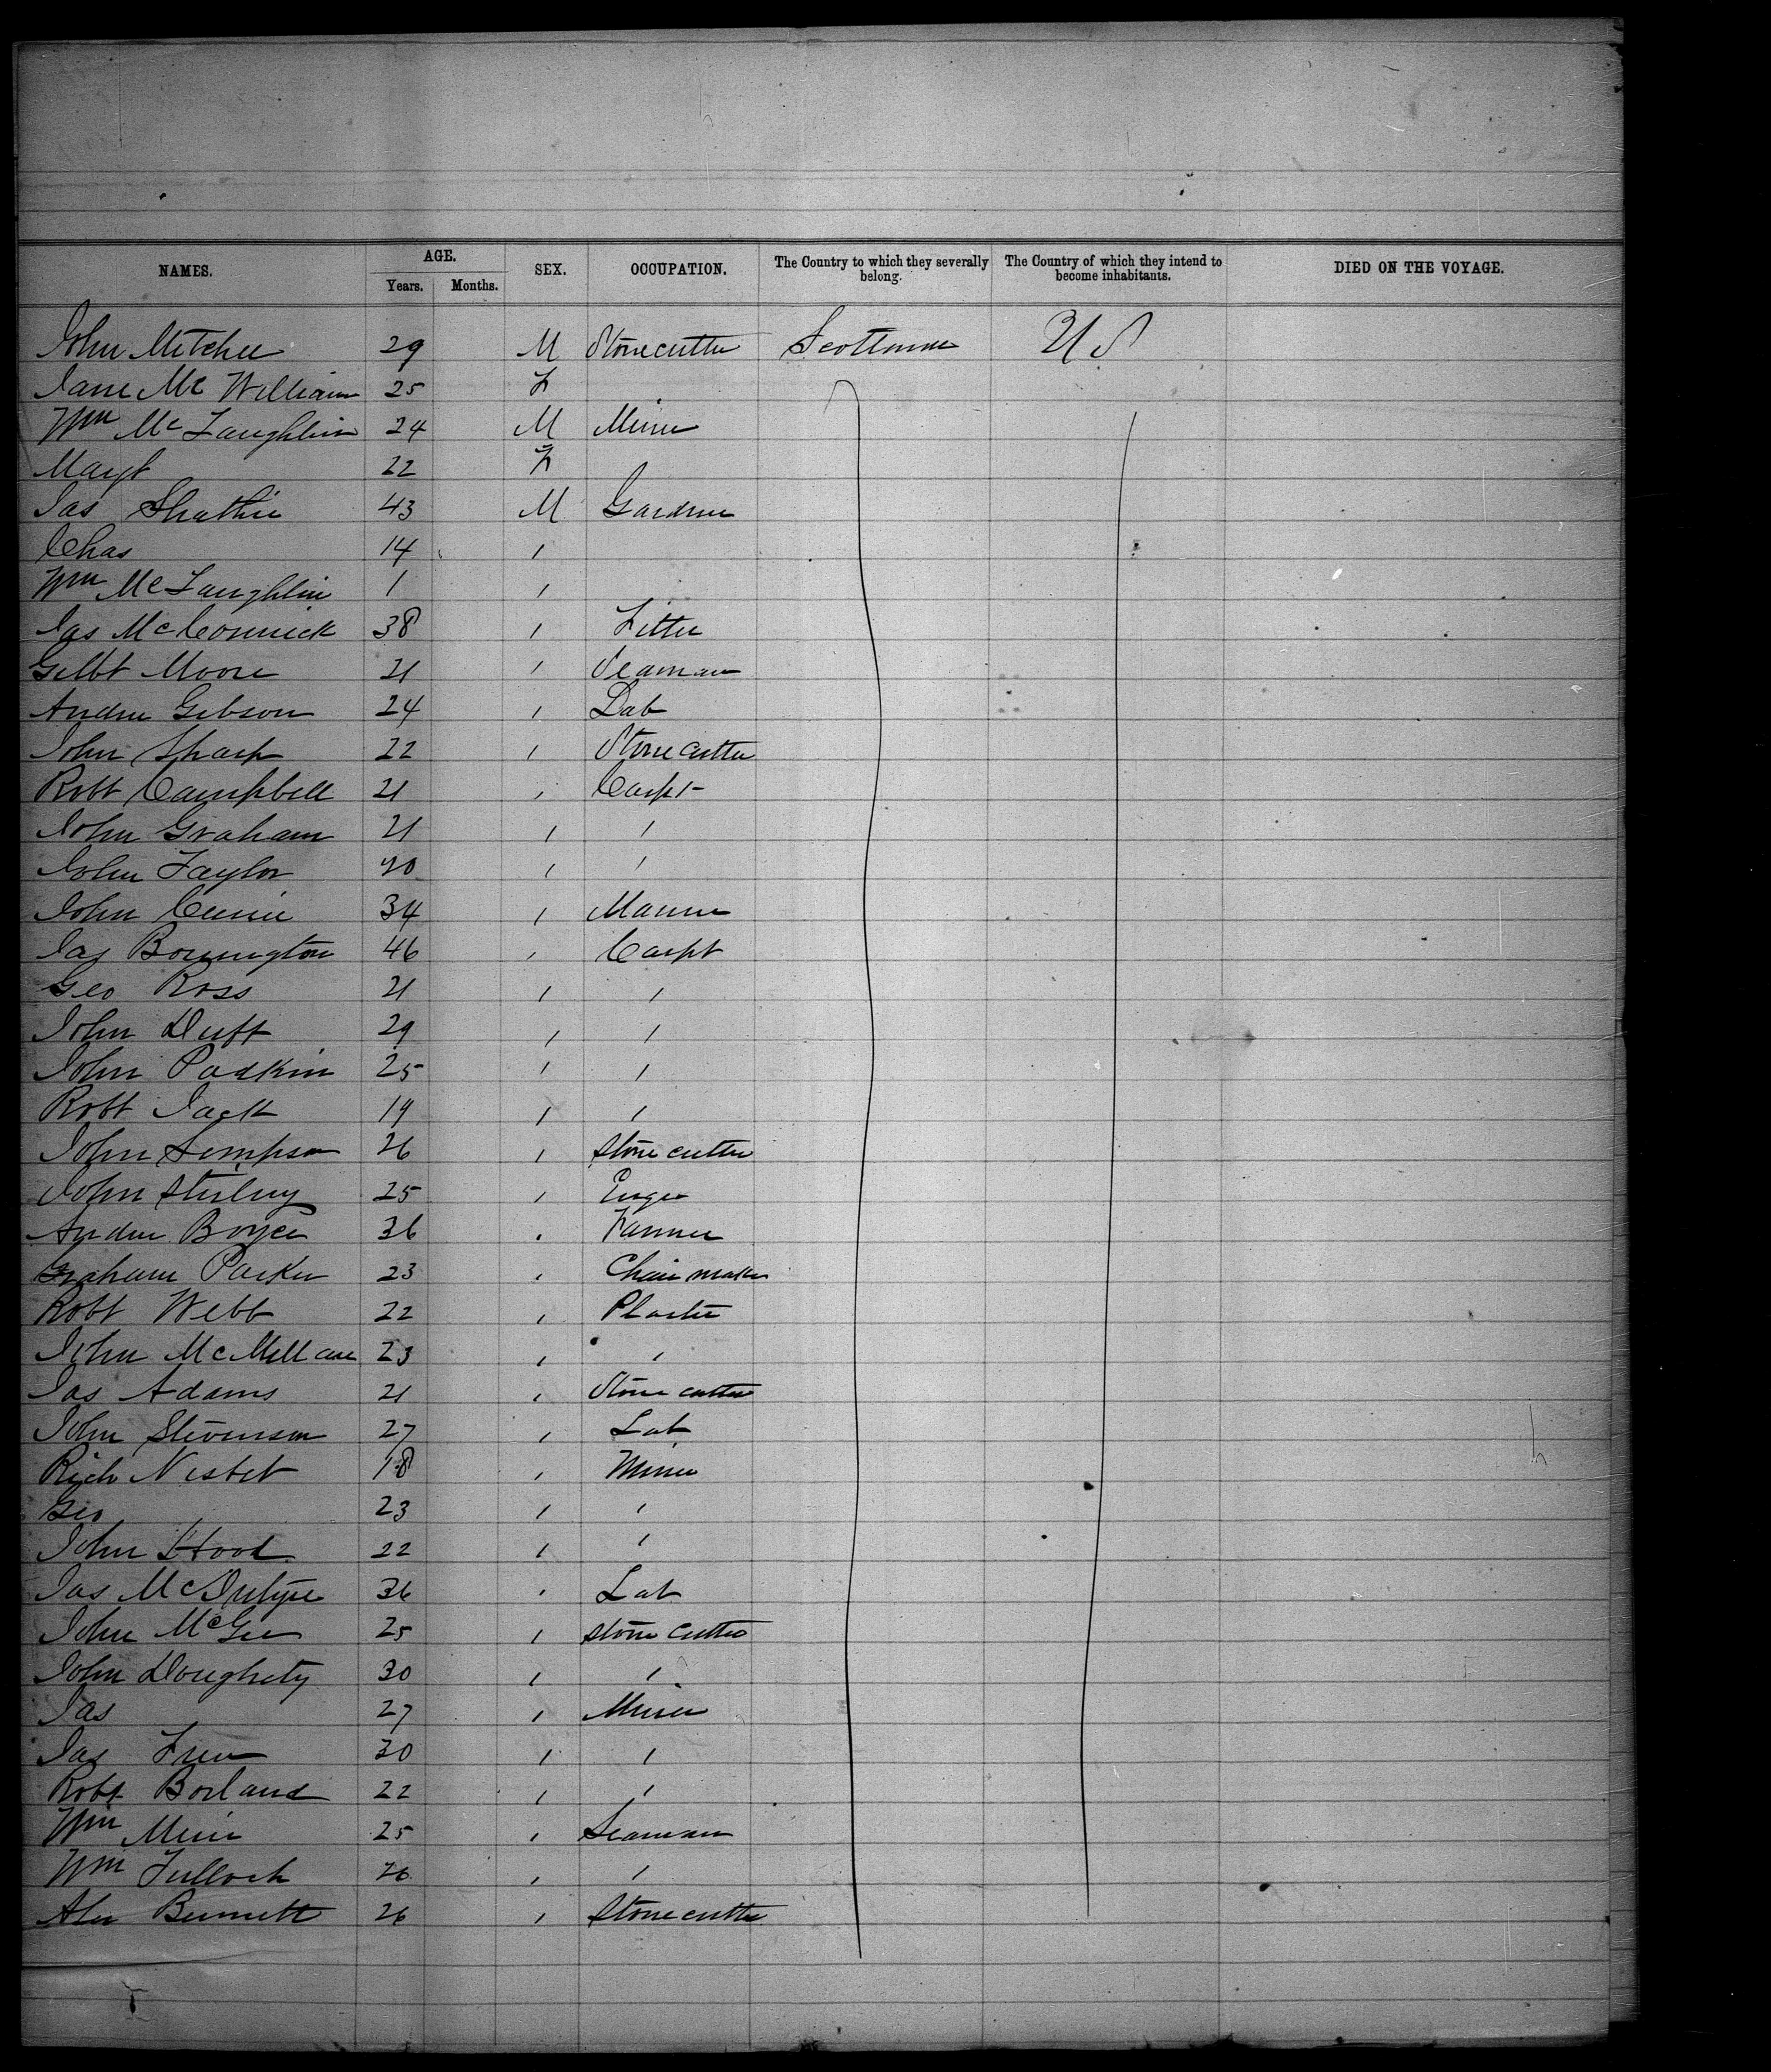 NAMES. AGE. SEX. OCCUPATION. The Country to which they severally belong. The Country of which they intend to become inhabitants. DIED ON THE VOYAGE.
Years. Months.
John Mitchell 29 M Stonecutter Scotland U S
Jane Mc William 25 F
Wm McLaughlin 24 M Miner
Margt 22 F
Jas 43 M Gardner
Chas 14 ′
Wm McLaughlin 1 ′
Jas McCormick 38 ′ Fitter
Gilbt Moore 21 ′ Seaman
Andrew Gibson 24 ′ Lab
John Sharp 22 ′ Stone cutter
Robt Campbell 21 ′ Carpt
John Graham 21 ′ ′
John Taylor 20 ′ ′
John Currie 34 ′
Jas Bonnington 46 ′ Carpt
Geo Ross 21 ′ ′
John Duff 29 ′ ′
John Podkin 25 ′ ′
Robt Jack 19 ′ ′
John Simpson 26 ′ stone cutter
John Stirling 25 ′ Engr
Andrew Boyce 36 ′ Farmer
Graham Parker 23 ′ Chair maker
Robt Webb 22 ′ Plaster
John McMillan 23 ′ ′
Jas Adams 21 ′ Stone cutter
John Stevenson 27 ′ Lab
Rich Nisbet 18 ′ Miner
Geo 23 ′ ′
John Hood 22 ′ ′
Jas McIntyre 36 ′ Lab
John McGee 25 ′ stone cutter
John Doughety 30 ′ ′
Jas 27 ′ Miner
Jas Frew 30 ′ ′
Robt Borland 22 ′ ′
Wm Muir 25 ′ Seaman
Wm Tulloch 26 ′ ′
Alex Bennett 26 ′ Stonecutter